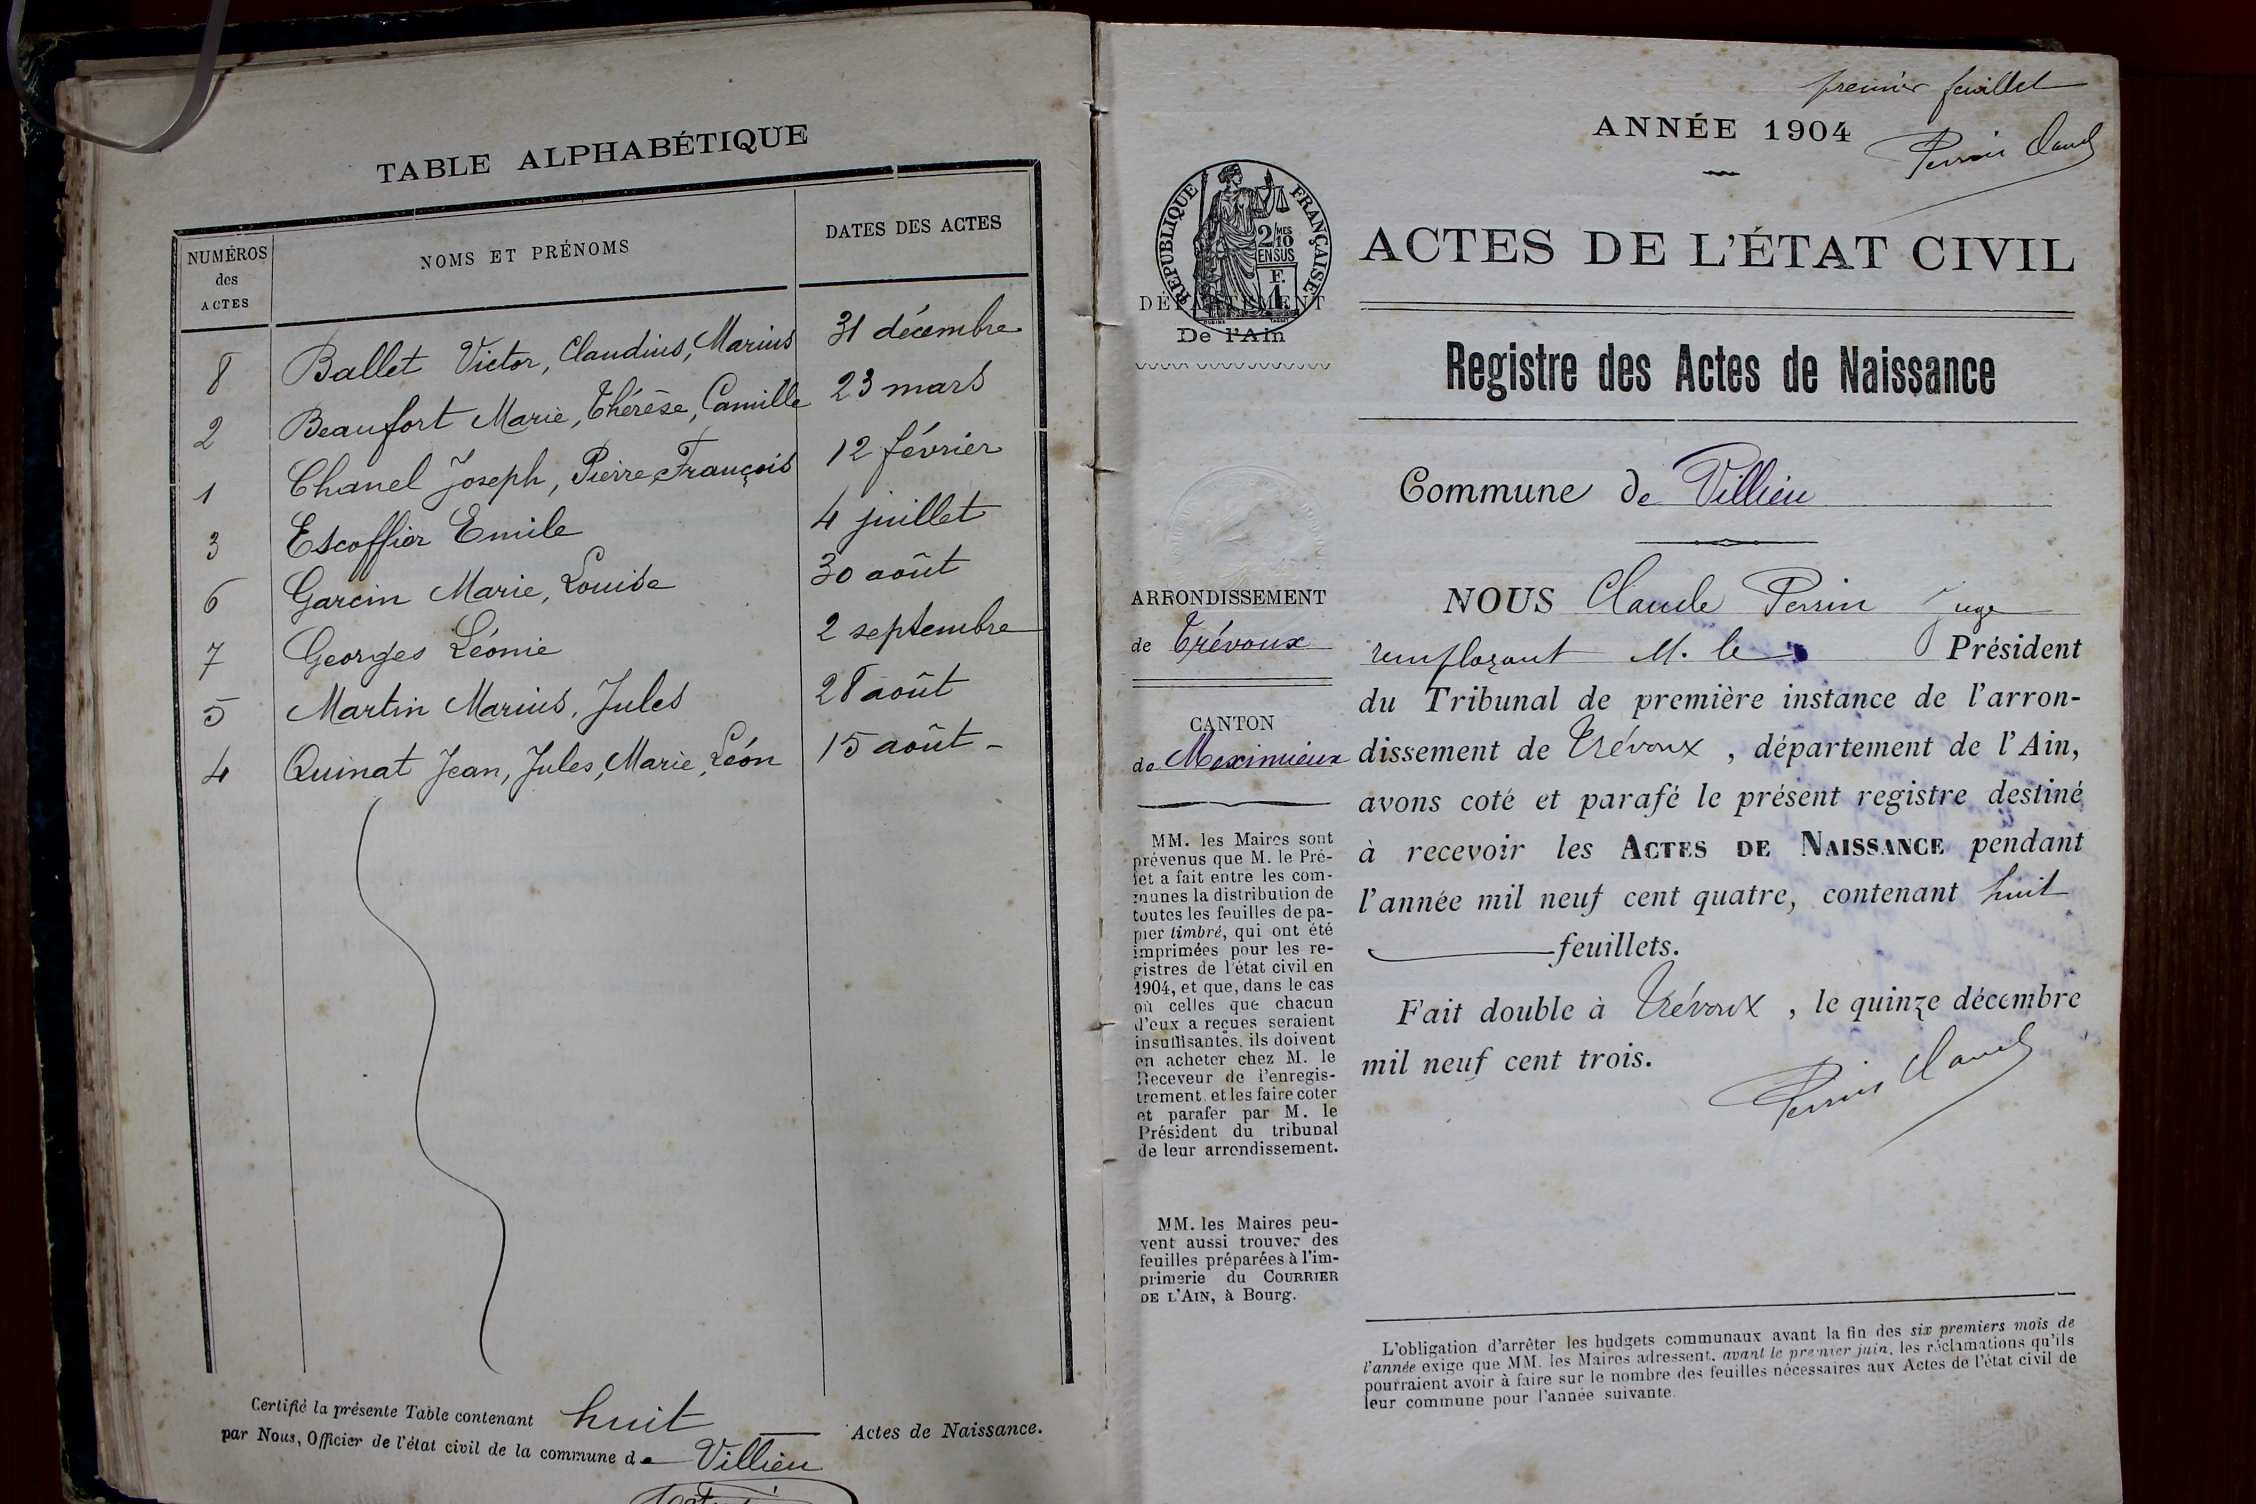 TABLE ALPHABÉTIQUE
NUMÉROS des ACTES
NOMS ET PRÉNOMS
DATES DES ACTES
8 Ballet Victor, Claudius, Marius 31 décembre
2 Beaufort Marie, Thérèse, Camille 23 mars
1 Chanel Joseph, Pierre, François 12 février
3 Escoffier Emile 4 juillet
6 Garcin Marie, Louise 30 août
7 Georges Léonie 2 septembre
5 Martin Marius, Jules 28 août
4 Quinat Jean, Jules, Marie, Léon 15 août -
Certifié la présente Table contenant huit Actes de Naissance.
par Nous, Officier de l'état civil de la commune de Villieu
premier feuillet
ANNÉE 1904
Perrin Claude
RÉPUBLIQUE FRANÇAISE
2/10 MES
EN SUS
F.
1
ACTES DE L'ÉTAT CIVIL
DÉPARTEMENT
De l'Ain
Registre des Actes de Naissance
Commune de Villieu
ARRONDISSEMENT
de Trévoux
CANTON
de Meximieux
MM. les Maires sont
prévenus que M. le Pré-
fet a fait entre les com-
munes la distribution de
toutes les feuilles de pa-
pier timbré, qui ont été
imprimées pour les re-
gistres de l'état civil en
1904, et que, dans le cas
où celles que chacun
d'eux a reçues seraient
insuffisantes, ils doivent
en acheter chez M. le
Receveur de l'enregis-
trement et les faire coter
et parafer par M. le
Président du tribunal
de leur arrondissement.
MM. les Maires peu-
vent aussi trouver des
feuilles préparées à l'im-
primerie du COURRIER
DE L'AIN, à Bourg.
NOUS Claude Perrin Juge
remplaçant M. le Président
du Tribunal de première instance de l'arron-
dissement de Trévoux, département de l'Ain,
avons coté et parafé le présent registre destiné
à recevoir les ACTES DE NAISSANCE pendant
l'année mil neuf cent quatre, contenant huit
feuillets.
Fait double à Trévoux, le quinze décembre
mil neuf cent trois.
Perrin Claude
L'obligation d'arrêter les budgets communaux avant la fin des six premiers mois de
l'année exige que MM. les Maires adressent, avant le premier juin, les réclamations qu'ils
pourraient avoir à faire sur le nombre des feuilles nécessaires aux Actes de l'état civil de
leur commune pour l'année suivante.